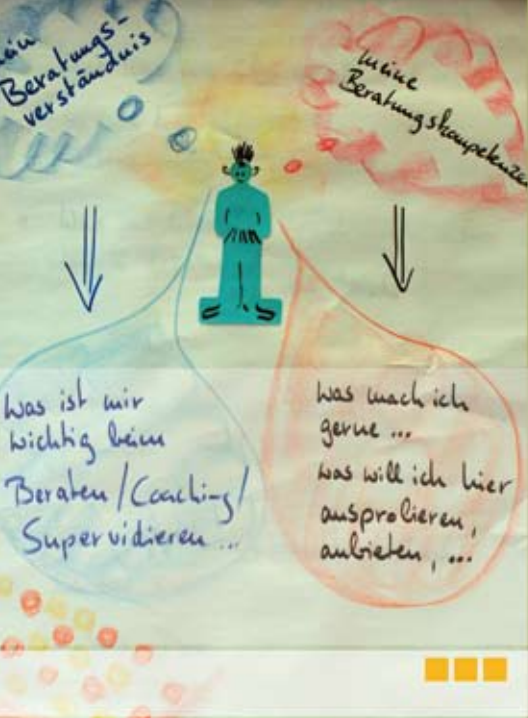 mein
Beratungs-
verständnis
meine
Beratungskompetenzen
was ist mir
wichtig beim
Beraten/Coaching/
Supervidieren...
was mach ich
gerne ...
was will ich hier
ausprobieren,
anbieten, ...